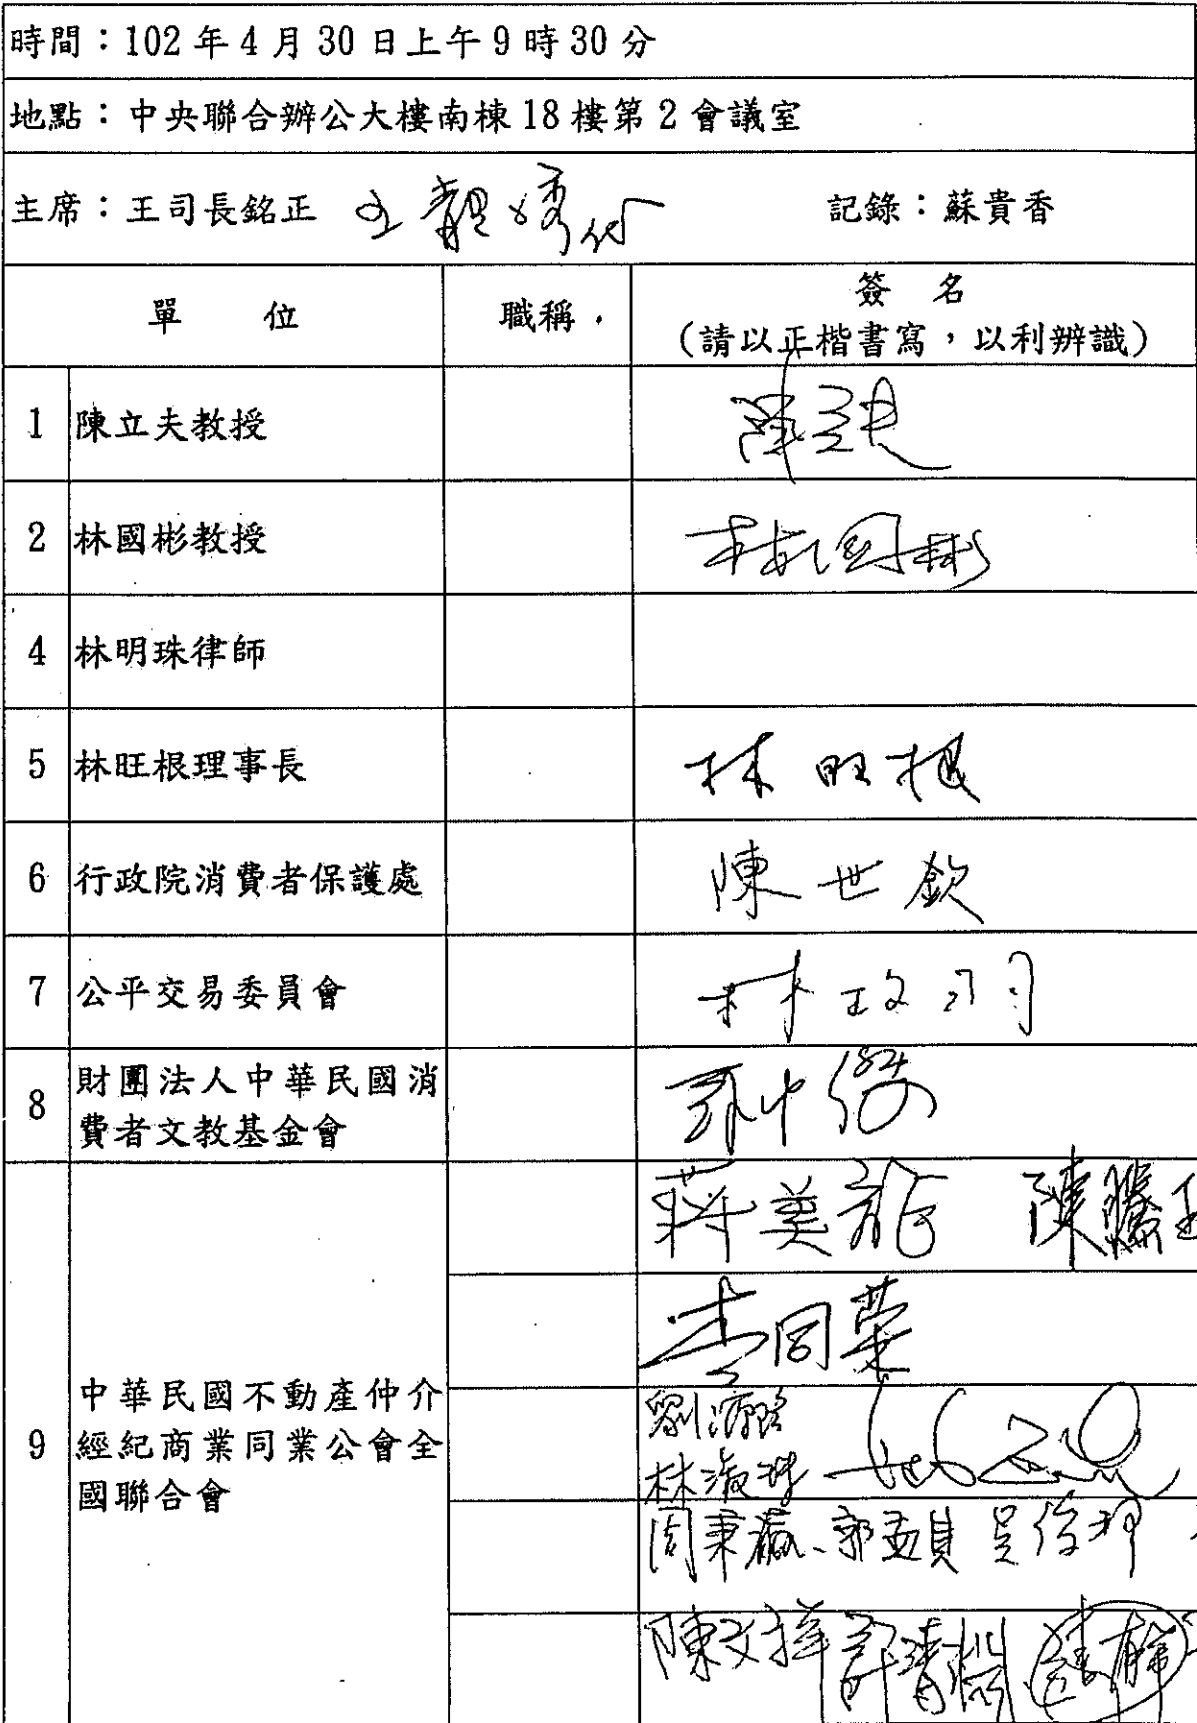 時間：102年4月30日上午9時30分
地點：中央聯合辦公大樓南棟18樓第2會議室
主席：王司長銘正 王靚琇代 記錄：蘇貴香
單位 職稱 簽名
（請以正楷書寫，以利辨識）
1 陳立夫教授 陳立夫
2 林國彬教授 林國彬
4 林明珠律師
5 林旺根理事長 林旺根
6 行政院消費者保護處 陳世欽
7 公平交易委員會 林政
8 財團法人中華民國消
費者文教基金會
蔣美龍 陳騰
李同榮
9 中華民國不動產仲介
經紀商業同業公會全
國聯合會
林淑
周秉 郭孟貝 吳
陳文